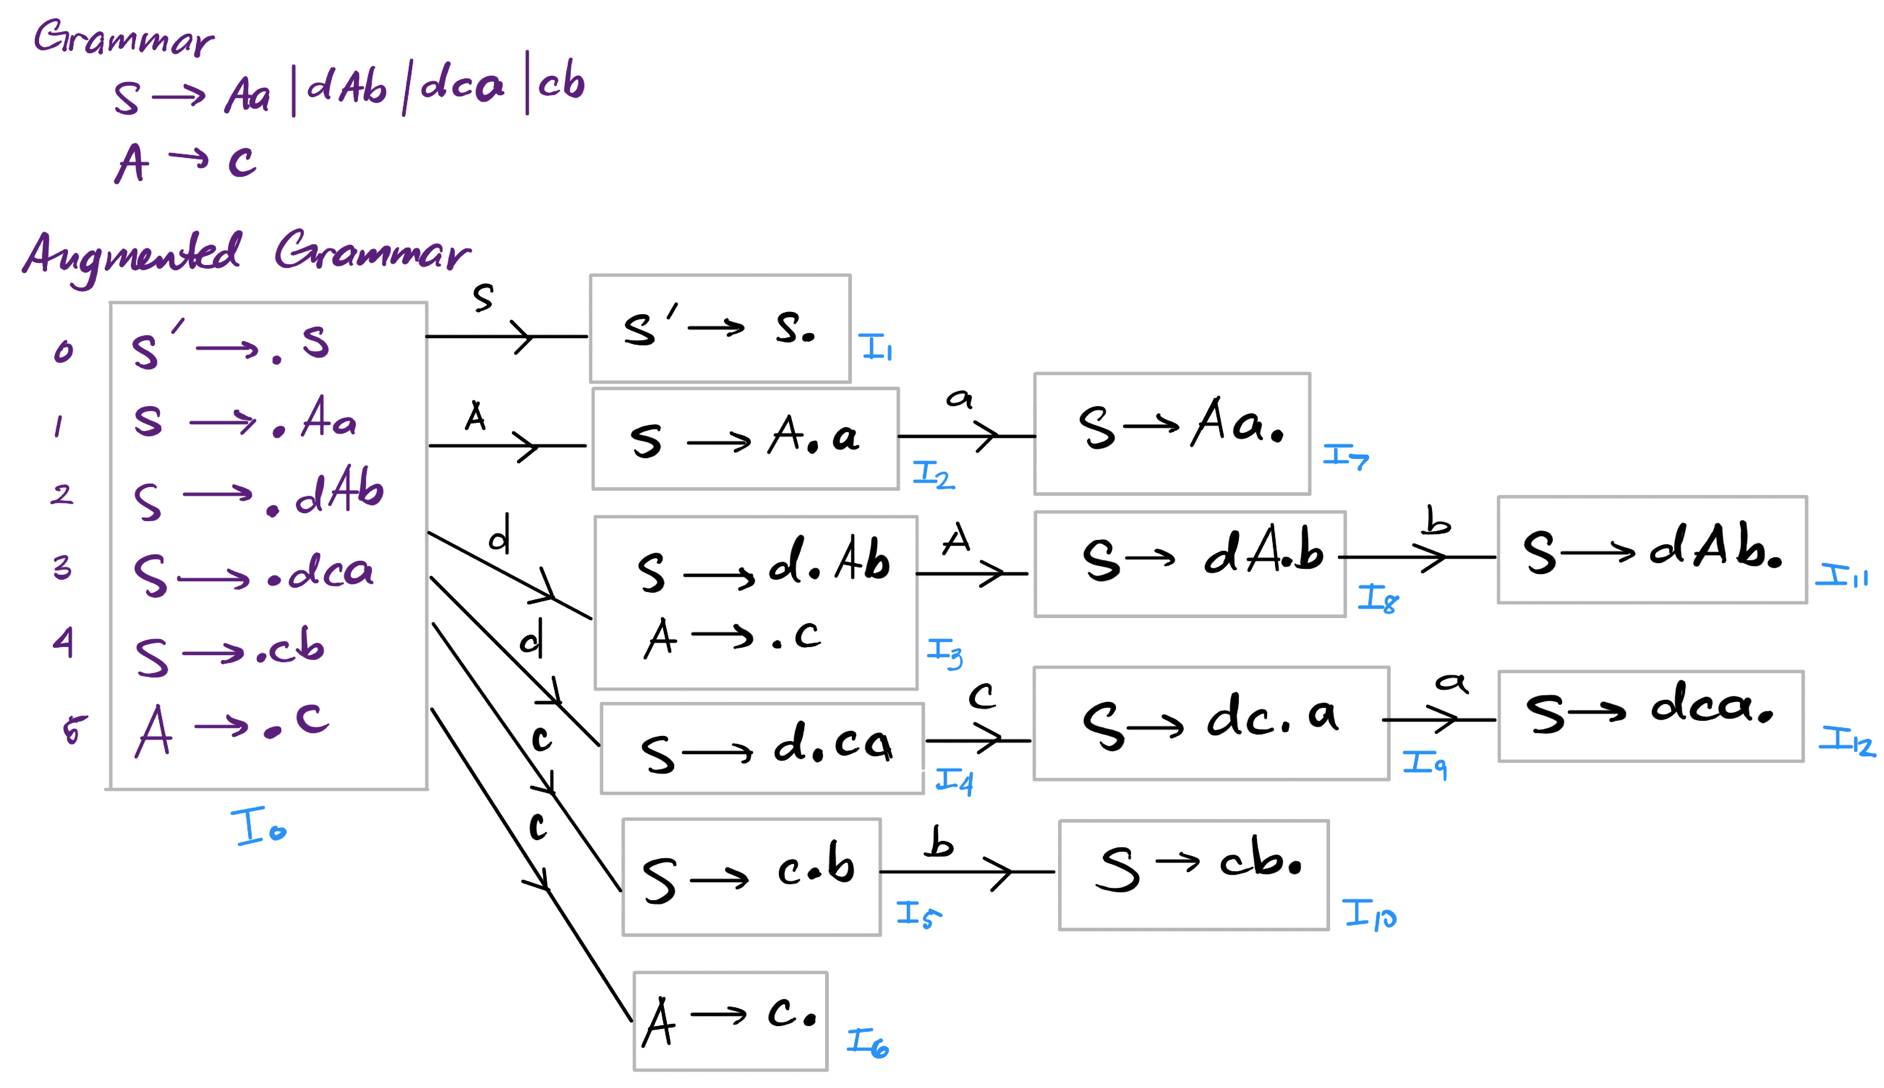 Grammar
S → Aa | dAb | dca | cb
A → c
Augmented Grammar
0 S' → . S
1 S → . Aa
2 S → . dAb
3 S → .dca
4 S → .cb
5 A → . c
I0
S
S' → S.
I1
A
S → A.a
I2
a
S → Aa.
I7
d
S → d.Ab
A → .c
I3
A
S → dA.b
I8
b
S → dAb.
I11
d
S → d.ca
I4
c
S → dc.a
I9
a
S → dca.
I12
c
S → c.b
I5
b
S → cb.
I10
c
A → c.
I6